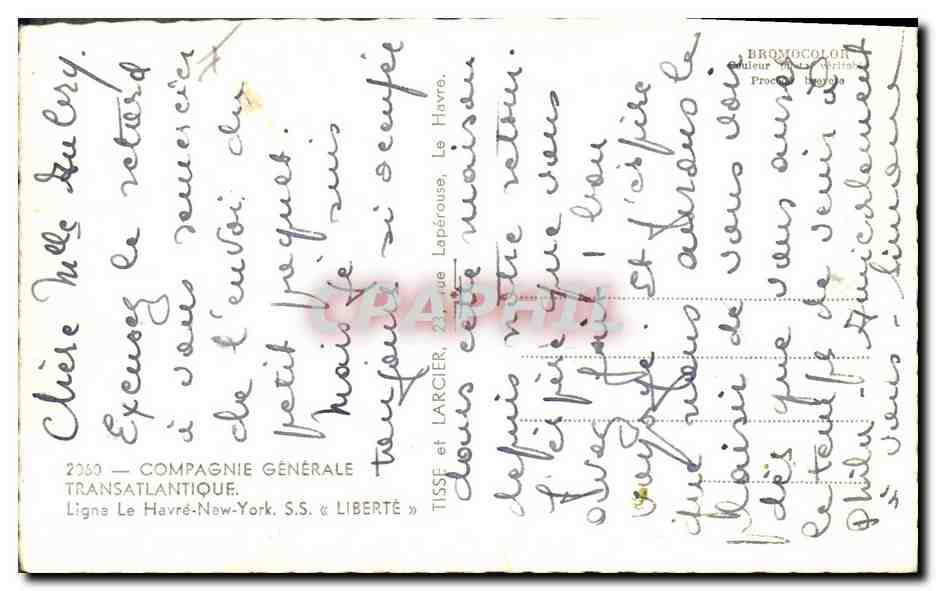 Chère Mlle
Excusez le retard
à vous remercier
de l'envoi du
petit paquet.
Mais je suis
toujours si occupée
dans cette maison
depuis notre retour.
J'espère que vous
avez fait 1 bon
voyage. Et j'espère
que nous aurons le
plaisir de vous voir
dès que vous aurez
le temps de venir à
Amicalement
à vous -
2060 — COMPAGNIE GÉNÉRALE
TRANSATLANTIQUE.
Ligne Le Havre-New-York. S.S. « LIBERTÉ »
TISSE et LARCIER, 23, rue Lapérouse, Le Havre.
BROMOCOLOR
Couleur photo véritable
CPAPHIL